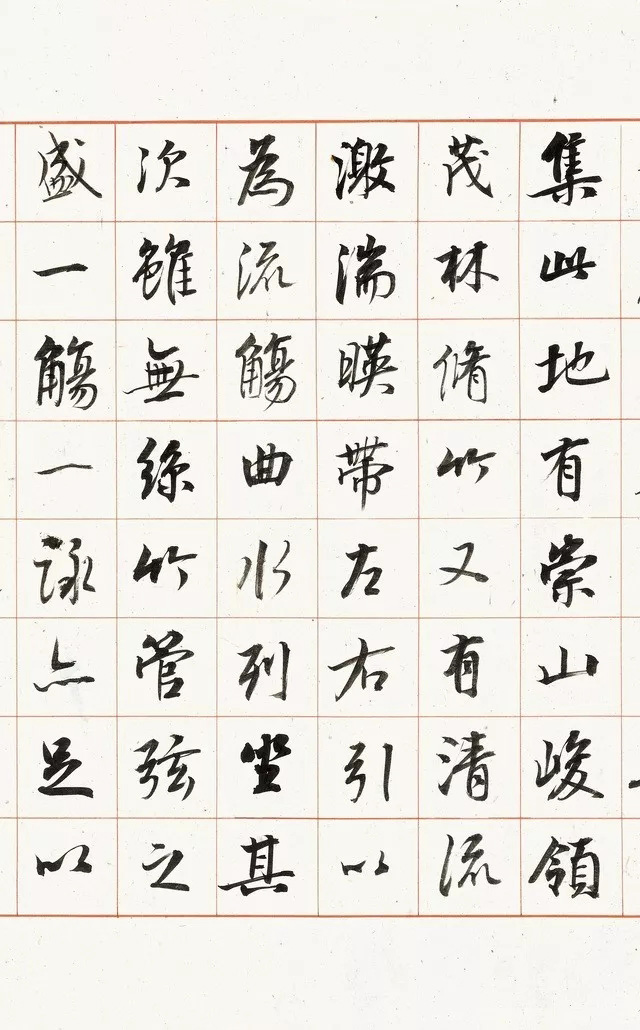 集此地有崇山峻領
茂林脩竹又有清流
激湍暎帶左右引以
為流觴曲水列坐其
次雖無絲竹管弦之
盛一觴一詠亦足以